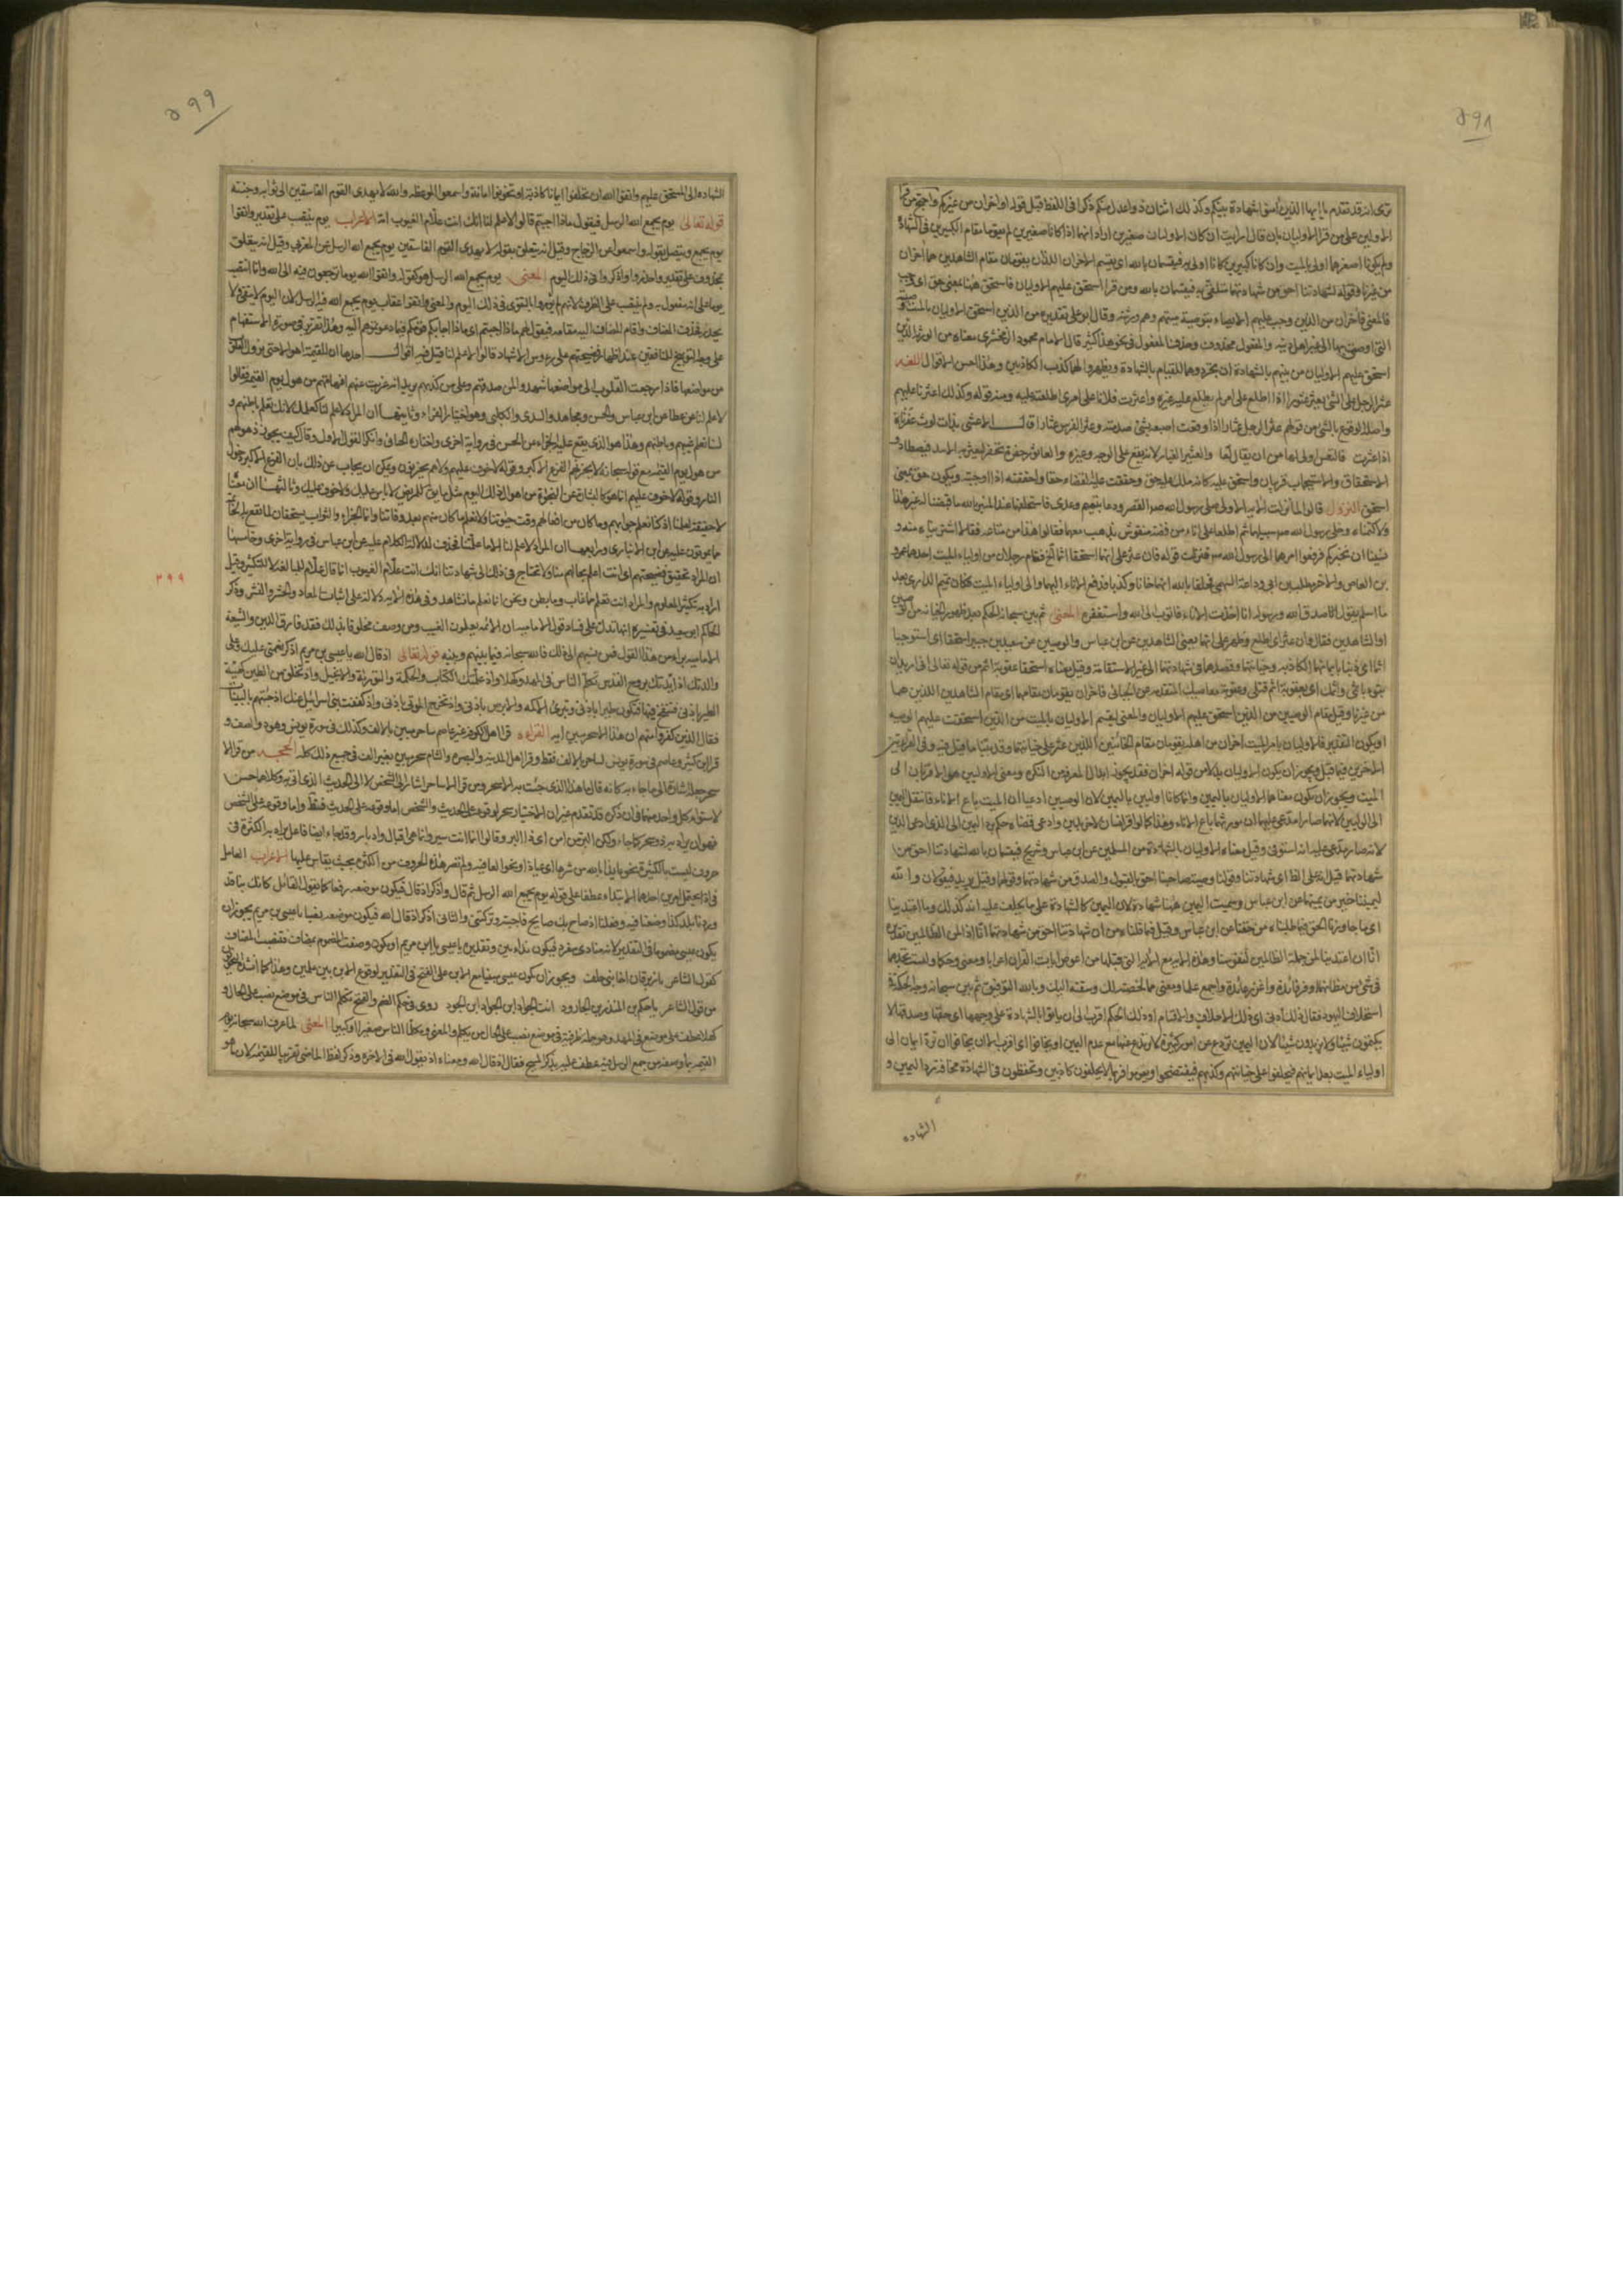 ۵۹۸
ترى انه قد تقدم يا ايها الذين آمنوا شهادة بينكم وكذلك اثنان ذوا عدل منكم ذكرا فى اللفظ قبل قوله او اخران من غيركم واحتج من قرا
الاولين على من قرا الاوليان بان قال ارايت ان كان الاوليان صغيرين اراد انهما اذا كانا صغيرين لم يقوما مقام الكبيرين فى الشهادة
ولم يكونا لصغرهما اولى بالميت وان كانا كبيرين كانا اولى به فيقسمان بالله اى يقسم الاخران اللذان يقومان مقام الشاهدين هما اخران
من غيرنا وقوله لشهادتنا احق من شهادتهما متلقى به فيقسمان بالله ومن قرا استحق عليهم الاوليان فاستحق ههنا بمعنى حق اى وجب
فالمعنى فاخران من الذين وجب عليهم الايصاء بتوصية ميتهم وهم ورثته وقال ابو على تقديره من الذين استحق الاوليان بالميت وصيته
التى اوصى بها الى غير اهل دينه والمفعول محذوف وحذف المفعول فى نحو هذا كثير قال الامام محمود الزمخشرى معناه من الورثة الذين
استحق عليهم الاوليان من بينهم بالشهادة ان يجردوهما للقيام بالشهادة ويظهروا بهما كذب الكاذبين وهذا احسن الاقوال اللغه
عثر الرجل على الشئ يعثر عثورا اذا اطلع على امر لم يطلع عليه غيره واعثرت فلانا على امرى اطلعته عليه ومنه قوله وكذلك اعثرنا عليهم
واصله الوقوع بالشئ من قولهم عثر الرجل عثارا اذا وقعت اصبعه بشئ صدمته وعثر الفرس عثارا قال الاعشى بذات لوث عفرناة
اذا عثرت فالتعس اولى لها من ان يقال لعا والعثير الغبار لانه يقع على الوجه وغيره والعاثور حفرة تحفر ليعثر به الاسد فيصطاد و
الاستحقاق والاستيجاب قريبان واستحق عليه كانه ملك عليه حق وحققت عليه القضاء حقا واحققته اذا اوجبته ويكون حق بمعنى
استحق النزول قالوا لما نزلت الاية الاولى صلى رسول الله ص العصر ودعا بتميم وعدى فاستحلفهما عند المنبر بالله ما قبضنا له غير هذا
ولا كتمناه وخلى رسول الله ص سبيلهما ثم اطلعوا على اناء من فضة منقوش بذهب معهما فقالوا هذا من متاعه فقالا اشتريناه منه و
نسينا ان نخبركم فرفعوا امرهما الى رسول الله ص فنزلت قوله فان عثر على انهما استحقا اثما الخ فقام رجلان من اولياء الميت احدهما عمرو
بن العاص والاخر مطلب بن ابى وداعة السهمى فحلفا بالله انهما خانا وكذبا فدفع الاناء اليهما والى اولياء الميت فكان تميم الدارى بعد
ما اسلم يقول صدق الله ورسوله انا اخذت الاناء فاتوب الى الله واستغفره المعنى ثم بين سبحانه الحكم بعد ظهور الخيانة من الوصيين
او الشاهدين فقال فان عثر اى اطلع وظهر على انهما يعنى الشاهدين عن ابن عباس والوصيين عن سعيد بن جبير استحقا اى استوجبا
اثما اى ذنبا بايمانهما الكاذبة وخيانتهما وقصدهما فى شهادتهما الى غير الاستقامة وقيل معناه استحقا عقوبة اثم من قوله تعالى انى اريد ان
تبوء باثمى واثمك اى بعقوبة اثم قتلى وعقوبة معاصيك المتقدمة عن الجبائى فاخران يقومان مقامهما اى مقام الشاهدين اللذين هما
من غيرنا وقيل مقام الوصيين من الذين استحق عليهم الاوليان والمعنى ليقم الاوليان بالميت من الذين استحقت عليهم الوصيه
او يكون التقدير فالاوليان بامر الميت اخران من اهله يقومان مقام الخائنين اللذين عثر على خيانتهما وقد بينا ما قيل فيه وفى القراءتين
الاخرتين فيما قبل ويجوز ان يكون الاوليان بدلا من قوله اخران فقد يجوز ابدال المعرفه من النكره ومعنى الاوليين هما الاقربان الى
الميت ويجوز ان يكون معناهما الاوليان باليمين وانما كانا اوليين باليمين لان الوصيين ادعيا ان الميت باع الاناء فانتقل اليمين
الى الوليين لانهما صارا مدعى عليهما ان مورثهما باع الاناء وهذا كما لو اقر انسان لاخر بدين وادعى قضاه حكم برد اليمين الى الذى ادعى الدين
لانه صار مدعى عليه انه استوفى وقيل معناه الاوليان بالشهادة من المسلمين عن ابن عباس وشريح فيقسمان بالله لشهادتنا احق من
شهادتهما قيل انه على الظاهر اى شهادتنا وقولنا وصيت صاحبنا احق بالقبول والصدق من شهادتهما وقولهما وقيل يريد فيقولان والله
ليميننا خير من يمينهما عن ابن عباس وسميت اليمين ههنا شهادة لان اليمين كالشهادة على ما يحلف عليه انه كذلك وما اعتدينا
اى ما جاوزنا الحق فيما طلبناه من حقنا عن ابن عباس وقيل فيما قلناه من ان شهادتنا احق من شهادتهما انا اذا لمن الظالمين تقديره
انا ان اعتدينا لمن جملة الظالمين لنفوسنا وهذه الاية مع الاية التى قبلها من اعوص ايات القران اعرابا ومعنى وحكما ولست تجدهما
فى شئ من مظانهما اوفر فائدة واغزر عائدة واجمع علما ومعنى مما لخصته لك وسقته اليك وبالله التوفيق ثم بين سبحانه وجه الحكمة فى
استحلاف اليهود فقال ذلك ادنى اى ذلك الاحلاف والاقسام او ذلك الحكم اقرب الى ان ياتوا بالشهادة على وجهها اى حقها وصدقها لا
يكتمون شيئا ولا يزيدون شيئا لان اليمين تردع عن امور كثيرة لا يرتدع عنها مع عدم اليمين او يخافوا اى اقرب الى ان يخافوا ان ترد ايمان الى
اولياء الميت بعد ايمانهم فيحلفوا على خيانتهم وكذبهم فيفتضحوا ويغرموا فربما لا يحلفون كاذبين ويتحفظون فى الشهادة مخافة رد اليمين و
الشهاده
۵۹۹
الشهاده الى المستحق عليهم واتقوا الله ان تحلفوا ايمانا كاذبة او تخونوا امانة واسمعوا الموعظه والله لا يهدى القوم الفاسقين الى ثوابه وجنته
قوله تعالى يوم يجمع الله الرسل فيقول ماذا اجبتم قالوا لا علم لنا انك انت علام الغيوب اية الاعراب يوم ينتصب على تقدير واتقوا
يوم يجمع ويتصل بقوله واسمعوا عن الزجاج وقيل انه يتعلق بقوله لا يهدى القوم الفاسقين يوم يجمع الله الرسل عن المغربى وقيل انه يتعلق
بمحذوف على تقدير واحذروا واذكروا ذلك اليوم المعنى يوم يجمع الله الرسل هو كقوله واتقوا الله يوما ترجعون فيه الى الله وانما انتصب
يوما على انه مفعول به ولم ينتصب على الظرف لانهم لم يؤمروا بالتقوى فى ذلك اليوم والمعنى واتقوا عقاب يوم يجمع الله فيه الرسل لان اليوم لا يتقى ولا
يحذر فحذف المضاف واقام المضاف اليه مقامه فيقول لهم ماذا اجبتم اى ما الذى اجابكم قومكم فيما دعوتموهم اليه وهذا تقرير فى صورة الاستفهام
على وجه التوبيخ للمنافقين عند اظهار فضيحتهم على رءوس الاشهاد قالوا لا علم لنا قيل فيه اقوال احدها ان للقيمة اهوالا حتى تزول القلوب
من مواضعها فاذا رجعت القلوب الى مواضعها شهدوا لمن صدقهم وعلى من كذبهم يريد انه عزبت عنهم افهامهم من هول يوم القيمة فقالوا
لا علم لنا عن عطا عن ابن عباس والحسن ومجاهد والسدى والكلبى وهو اختيار الفراء وثانيها ان المراد لا علم لنا كعلمك لانك تعلم باطنهم و
لسنا نعلم غيبهم وباطنهم وهذا هو الذى يقع عليه الجزاء عن الحسن فى رواية اخرى واختاره الجبائى وانكر القول الاول وقال كيف يجوز ذهولهم
من هول يوم القيمة مع قوله سبحانه لا يحزنهم الفزع الاكبر وقوله لا خوف عليهم ولا هم يحزنون ويمكن ان يجاب عن ذلك بان الفزع الاكبر دخول
النار وقوله لا خوف عليهم انما هو كالبشارة عن النجاة من اهوال ذلك اليوم مثل ما يق للمريض لا باس عليك ولا خوف عليك وثالثها ان معناه
لا حقيقة لعلمنا اذ كنا نعلم جوابهم وما كان من افعالهم وقت حيوتنا ولا نعلم ما كان منهم بعد وفاتنا وانما الجزاء والثواب يستحقان لما تقع به الخاتمة
مما يموتون عليه عن ابن الانبارى ورابعها ان المراد لا علم لنا الا ما علمتنا فحذف لدلالة الكلام عليه عن ابن عباس فى رواية اخرى وخامسها
ان المراد تحقيق فضيحتهم اى انت اعلم بحالهم منا ولا تحتاج فى ذلك الى شهادتنا انك انت علام الغيوب انما قال علام للمبالغه لا للتكثير وقيل
۳۹۹
اراد به تكثير المعلوم والمراد انت تعلم ما غاب وما بطن ونحن انما نعلم ما نشاهد وفى هذه الاية دلالة على اثبات المعاد والحشر والنشر وذكر
الحاكم ابو سعيد فى تفسيره انها تدل على فساد قول الامامية ان الائمة يعلمون الغيب ومن وصف مخلوقا بذلك فقد فارق الدين والشيعة
الاماميه براء من هذا القول فمن نسبهم الى ذلك فالله سبحانه فيما بينهم وبينه قوله تعالى اذ قال الله يا عيسى بن مريم اذكر نعمتى عليك وعلى
والدتك اذ ايدتك بروح القدس تكلم الناس فى المهد وكهلا واذ علمتك الكتاب والحكمة والتورية والانجيل واذ تخلق من الطين كهيئة
الطير باذنى فتنفخ فيها فتكون طيرا باذنى وتبرئ الاكمه والابرص باذنى واذ تخرج الموتى باذنى واذ كففت بنى اسرائيل عنك اذ جئتهم بالبينات
فقال الذين كفروا منهم ان هذا الا سحر مبين ايه القراءه قرا اهل الكوفه غير عاصم ساحر مبين بالالف وكذلك فى سورة يونس وهود والصف و
قرا ابن كثير وعاصم فى سورة يونس لساحر بالالف فقط وقرا اهل المدينه والبصره والشام سحر مبين بغير الف فى جميع ذلك كله الحجه من قرا الا
سحر جعله اشارة الى ما جاء به كانه قال ما هذا الذى جئت به الا سحر ومن قرا الا ساحر اشار الى الشخص لا الى الحدث الذى اتى به وكلاهما حسن
لاستواء كل واحد منهما فى ان ذكره قد تقدم غير ان الاختيار سحر لوقوعه على الحدث والشخص اما وقوعه على الحدث فظاهر واما وقوعه على الشخص
فهو ان يراد به ذو سحر كما جاء ولكن البر من امن اى ذا البر وقالوا انما انت سير وانما هى اقبال وادبار وقد جاء ايضا فاعل يراد به الكثرة فى
حروف ليست بالكثيرة نحو عائذا بالله من شرها اى عياذا ونحو العافية ولم تصر هذه الحروف من الكثرة بحيث يقاس عليها الاعراب العامل
فى اذ يحتمل امرين احدهما الابتداء عطفا على قوله يوم يجمع الله الرسل ثم قال واذكر اذ قال فيكون موضعه رفعا كما يقول القائل كانك بنا قد
وردنا بلد كذا وصنعنا فيه وفعلنا اذ صاح بك صايح فاجبته وتركتنى والثانى اذكر اذ قال الله فيكون موضعه نصبا يا عيسى بن مريم يجوز ان
يكون عيسى مضموما فى التقدير لانه منادى مفرد فيكون نداءين وتقديره يا عيسى يا ابن مريم او يكون وصفت المضموم بمضاف فنصبت المضاف
كقول الشاعر يا زبرقان اخا بنى خلف ويجوز ان يكون عيسى مبنيا مع الابن على الفتح فى التقدير لوقوع الابن بين علمين وهذا كما انشد النحويون
من قول الشاعر يا حكم بن المنذر بن الجارود انت الجواد ابن الجواد ابن الجود روى فى حكم الضم والفتح تكلم الناس فى موضع نصب على الحال و
كهلا عطف على موضع فى المهد وهو جملة ظرفية فى موضع نصب على الحال من تكلم والمعنى وتكلم الناس صغيرا وكبيرا المعنى لما عرف الله سبحانه يوم
القيمه بما وصفه من جمع الرسل فيه عطف عليه بذكر المسيح فقال اذ قال الله ومعناه اذ يقول الله فى الاخرة وذكر لفظ الماضى تقريبا للقيمة لان ما هو